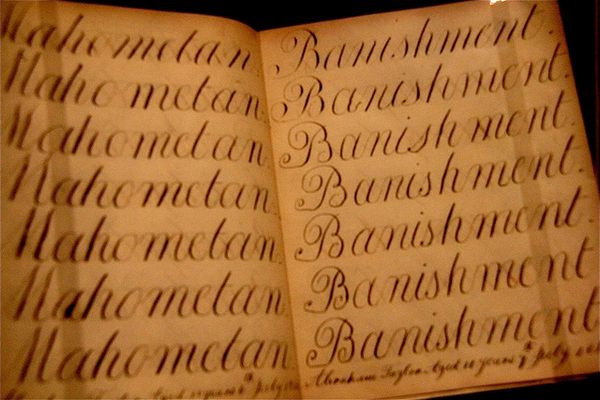 Mahometan.
Mahometan.
Mahometan.
Mahometan.
Mahometan.
Mahometan.
Mahometan.
Aged years 6th July
Banishment.
Banishment.
Banishment.
Banishment.
Banishment.
Banishment
Banishment
Abraham Taylor Aged 10 years 8th July